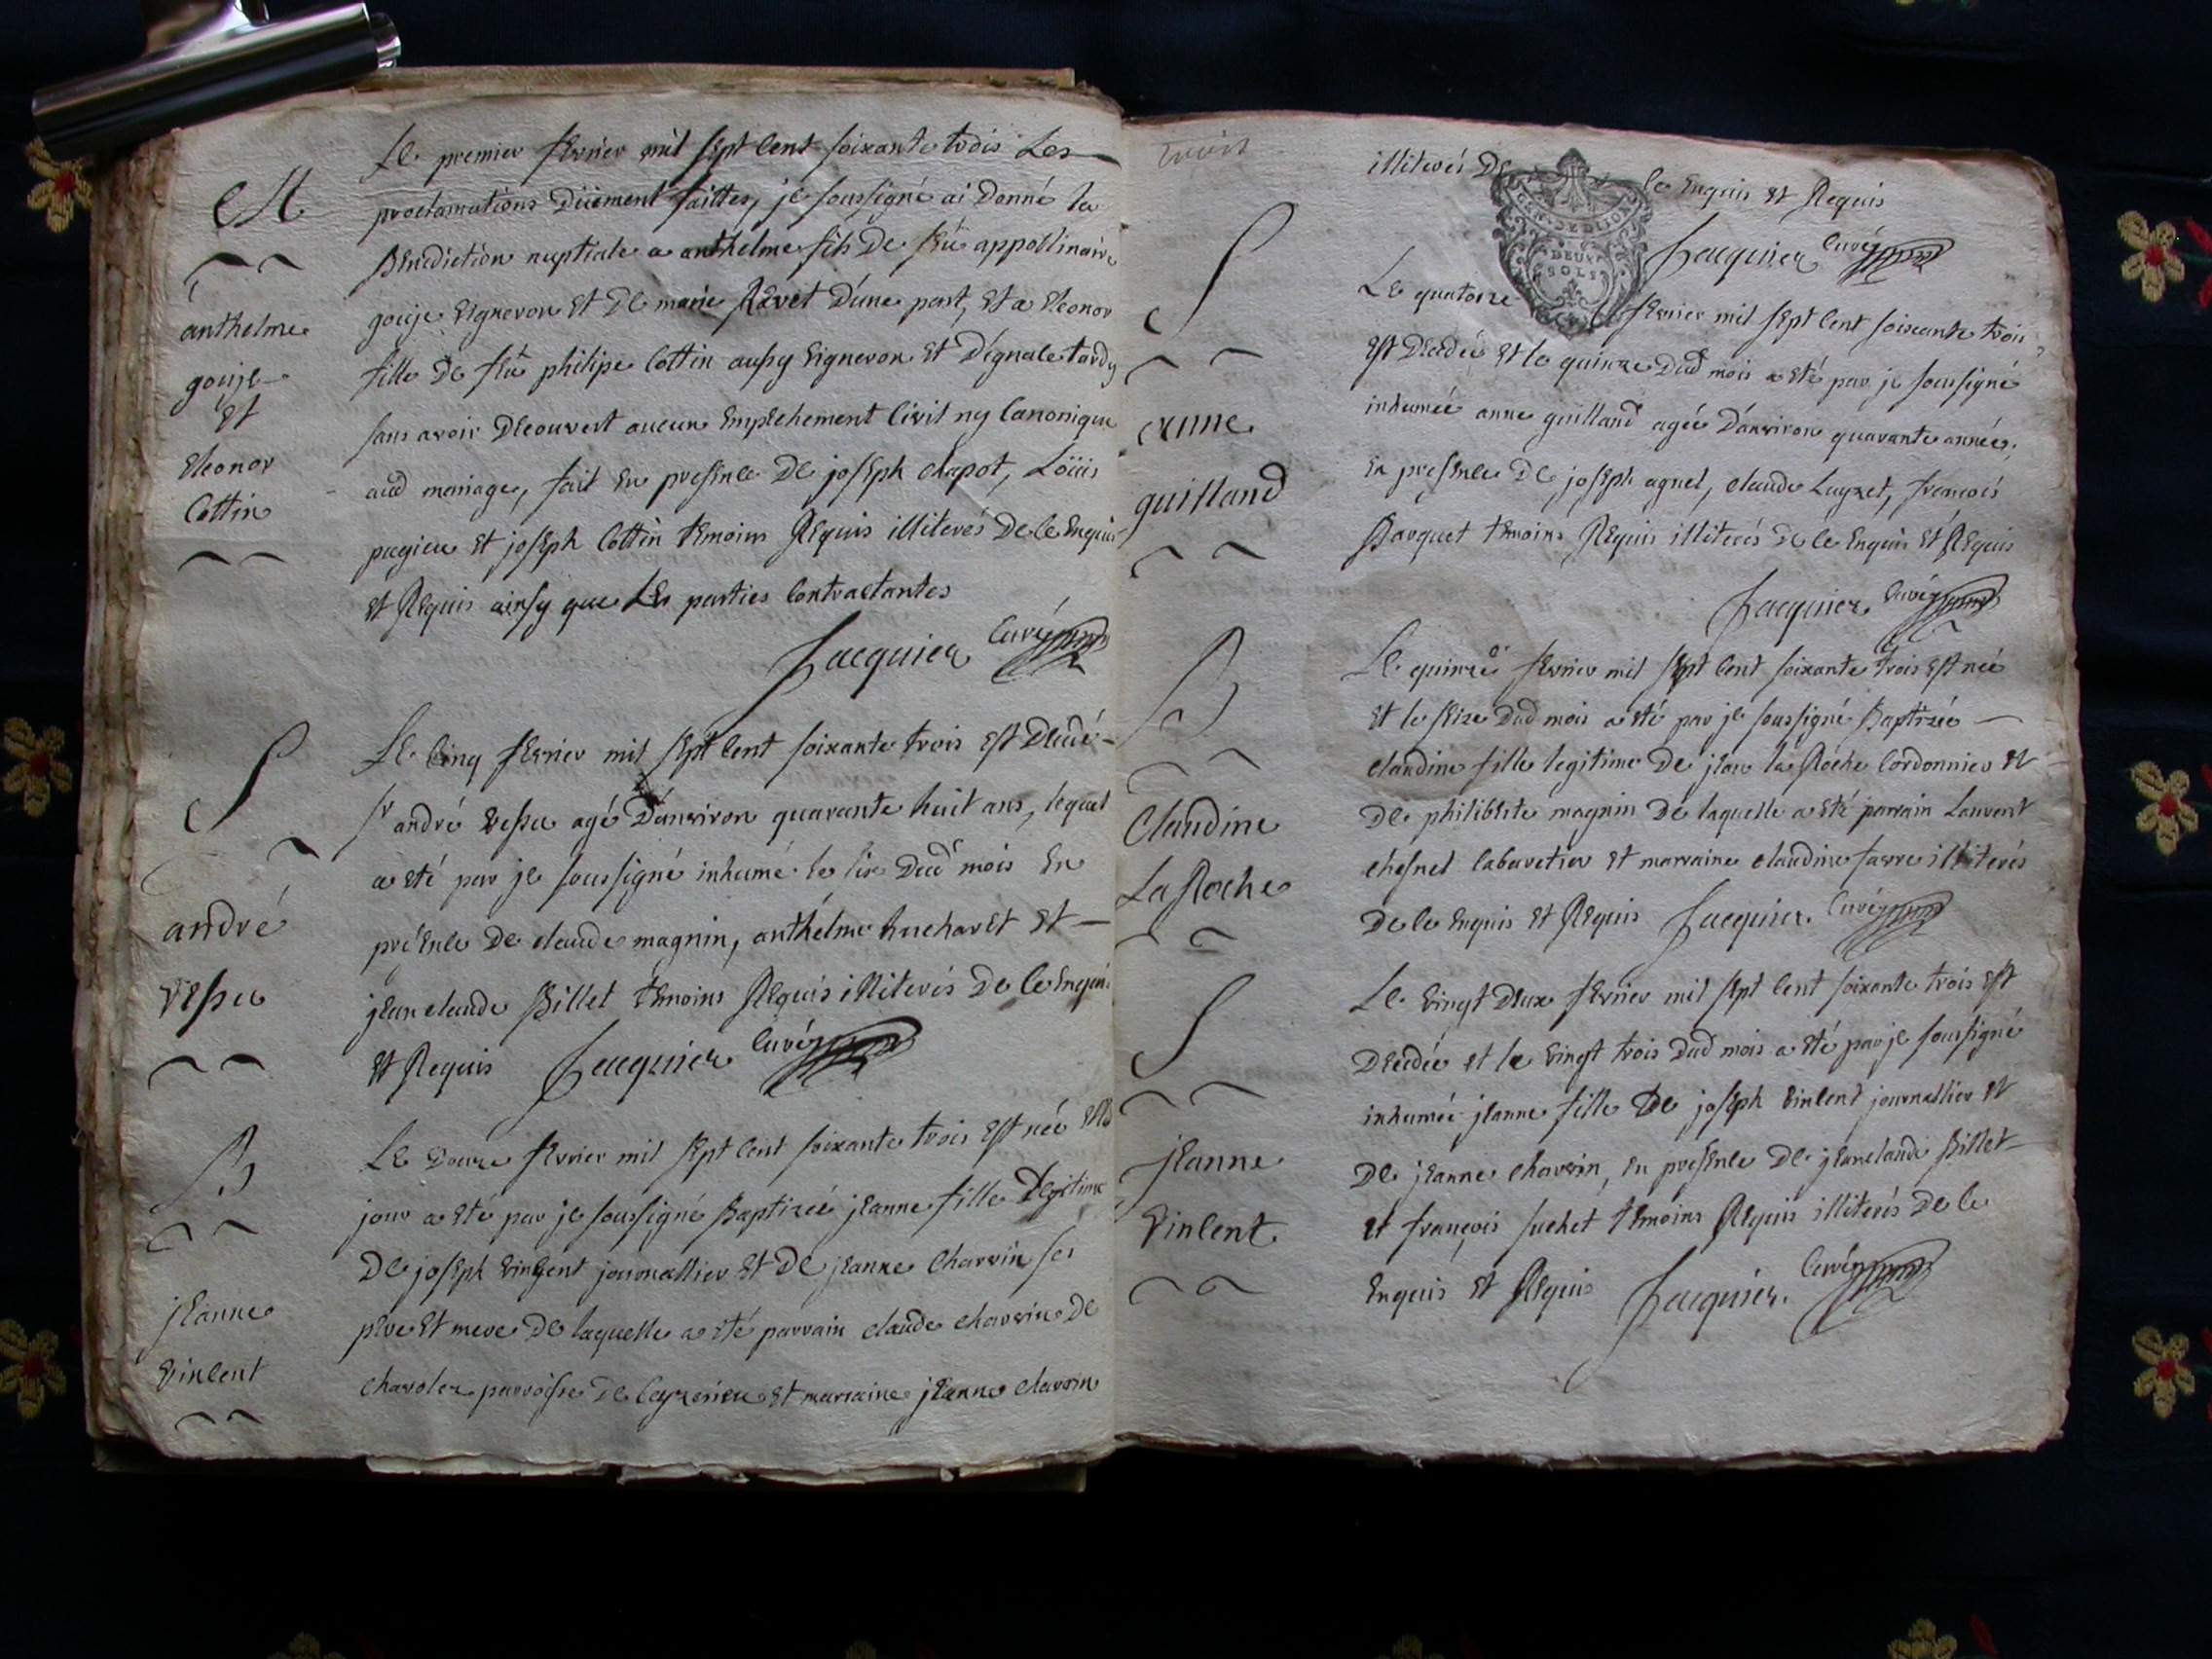 M
anthelme
gouje
et
eleonor
Cottin
Le premier fevrier mil sept Cent soixante trois Les
proclamations Düement faittes, je soussigné ai Donné la
Benediction nuptiale a anthelme fils De feu appollinaire
gouje vigneron et De marie Ravet D'une part, et a eleonor
fille De feu philipe Cottin aussy vigneron et D'ignale tardy
sans avoir Decouvert aucun empechement Civil ny Canonique
aud mariage, fait en presence De joseph chapot, Loüis
pugieu et joseph Cottin temoins Requis illiterés De ce enquis
et Requis ainsy que les parties Contractantes
Jacquier Curé
S
andré
vessu
Le Cinq fevrier mil sept Cent soixante trois est Decedé
Sr andré vessu agé D'anviron quarante huit ans, lequel
a eté par je soussigné inhumé le six Dud mois en
présence De claude magnin, anthélme hucharet et
jean claude Billet temoins Requis illiterés De ce enquis
et Requis Jacquier Curé
B
jeanne
vincent
Le Douze fevrier mil sept Cent soixante trois est née
jour a eté par je soussigné Baptizée jeanne fille Legitime
De joseph vincent journallier et De jeanne Charvin ses
pere et mere De laquelle a eté parrain claude charvin De
charolez parroisse De Ceyzerieu et marraine jeanne charvin
trois
illiterés De ce enquis et Requis
Jacquier Curé
GEN. DE DIJON
DEUX
SOLS
S
anne
guilland
Le quatorze fevrier mil sept Cent soixante trois
est Decedée et le quinze Dud mois a eté par je soussigné
inhumée anne guilland agée D'anviron quarante années,
en presence De joseph agnel, claude Luyzet, francois
Barquet temoins Requis illiterés De ce enquis et Requis
Jacquier Curé
B
Claudine
La Roche
Le quinze fevrier mil sept Cent soixante trois est née
et le seize Dud mois a eté par je soussigné Baptizée
claudine fille legitime De jean la Roche Cordonnier et
De philiberte magnin De laquelle a eté parrain Laurent
chesnel Cabaretier et marraine claudine favre illiterés
De ce enquis et Requis Jacquier. Curé
S
jeanne
vincent.
Le vingt Deux fevrier mil sept Cent soixante trois est
Decedée et le vingt trois Dud mois a eté par je soussigné
inhumée jeanne fille De joseph vincent journallier et
De jeanne charvin, en presence De jeanclaude Billet
et françois suchet temoins Requis illiterés De ce
enquis et Requis Jacquier. Curé